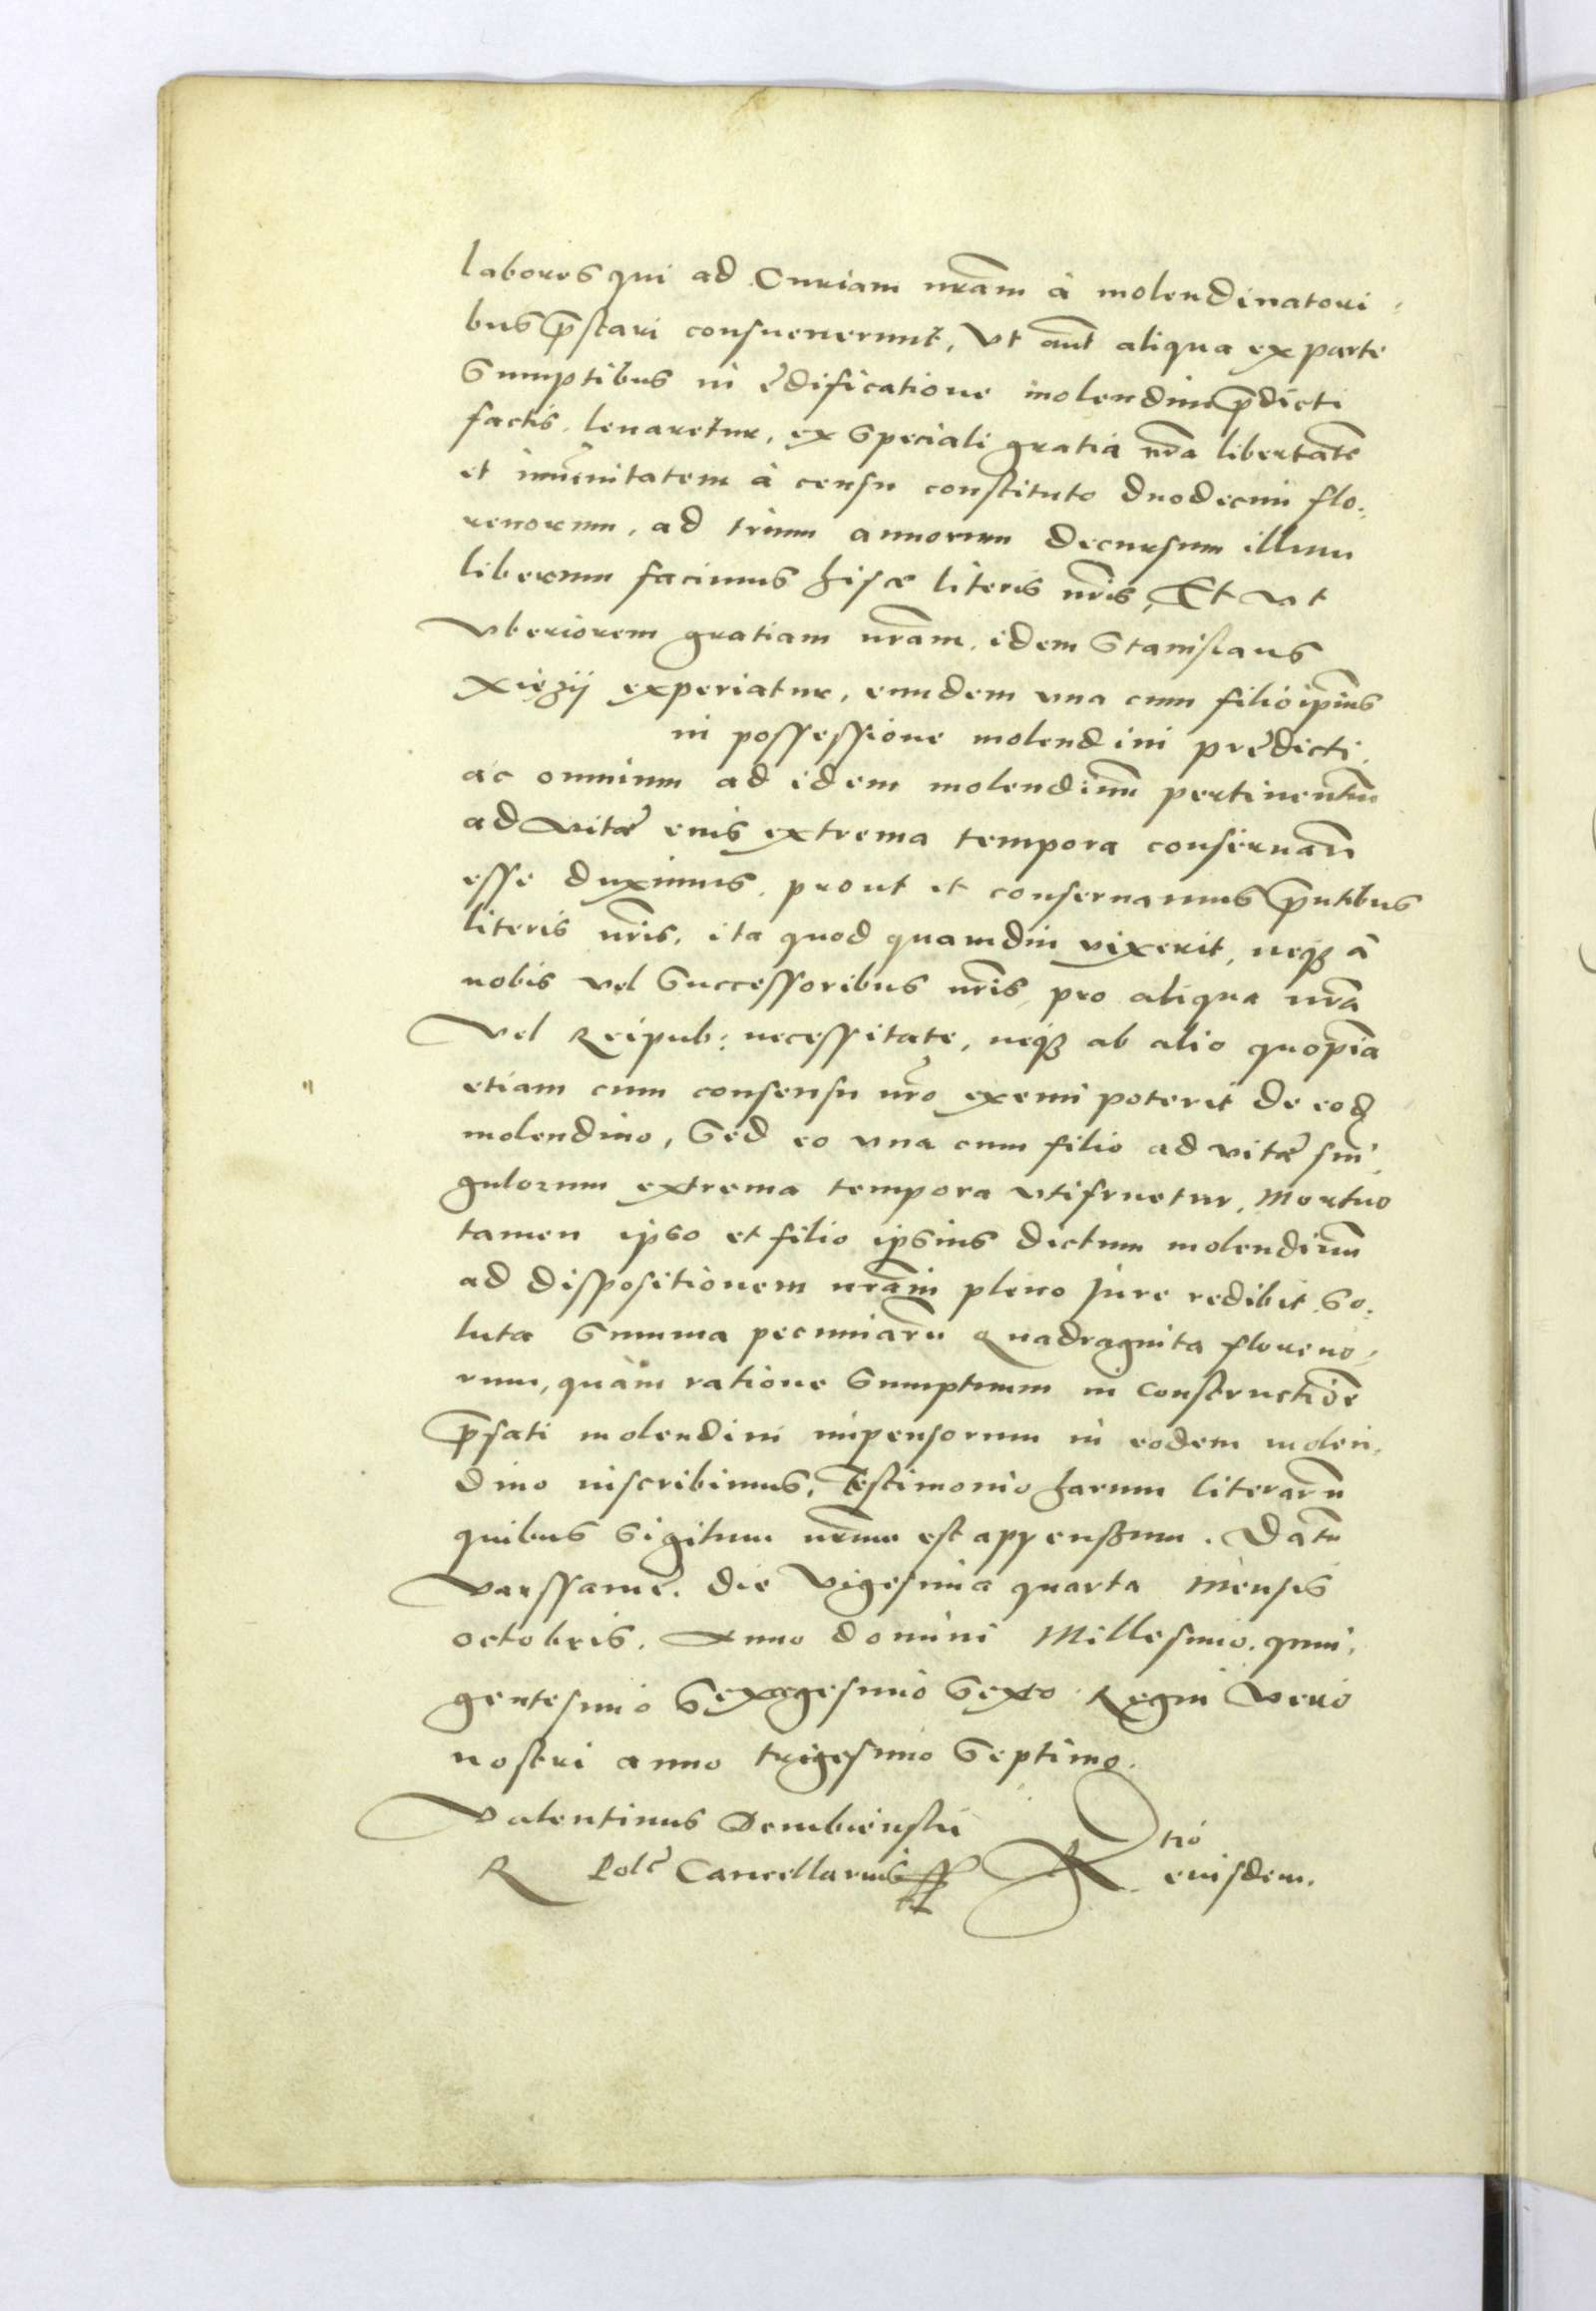 labores qui ad Curiam nr̃am à molendinatori-
bus p̃stari consueuerunt, Vt aũt aliqua ex parte
Sumptibus in ędificatione molendini p̃dicti
factis leuaretur, ex speciali gratia nr̃a libertatẽ
et imũnitatem à censu constituto duodecim flo:
renorum, ad trium annorum decursum illum
liberum facimus hisce literis nr̃is, Et vt
vberiorem gratiam nr̃am, idem Stanislaus
Xiężij experiatur, eundem vna cum filio ip̃ius
in possessione molendini prędicti,
ac omnium ad idem molendinũ pertinentiũ
ad vitę eius extrema tempora conseruañ
esse duximus, prout et conseruamus p̃ntibus
literis nr̃is, ita quod quamdiu vixerit, neqꝫ à
nobis vel Successoribus nr̃is, pro aliqua nr̃a
Vel Reipub: necessitate, neqꝫ ab alio quopiã
etiam cum consensu nr̃o eximi poterit de eod̃
molendino, Sed eo vna cum filio ad vitę sin-
gulorum extrema tempora vtifruetur, Mortuo
tamen ipso et filio ipsius dictum molendinũ
ad dispositionem nr̃am pleno jure redibit, So:
luta Summa pecuniarũ Quadraginta floreno-
rum, quàm ratione Sumptuum in constructiõe
p̃fati molendini impensorum in eodem molen-
dino inscribimus, Testimonio harum literarũ
quibus Sigillum nr̃um est appensum. Datũ
Varssauię. die Vigesima quarta Mensis
octobris. Anno domini Millesimo. quin-
gentesimo Sexagesimo Sexto Regni Vero
nostri anno trigesimo Septimo.
Valentinus Dembienski
R Polę Cancellarius
Rtio
eiusdem.